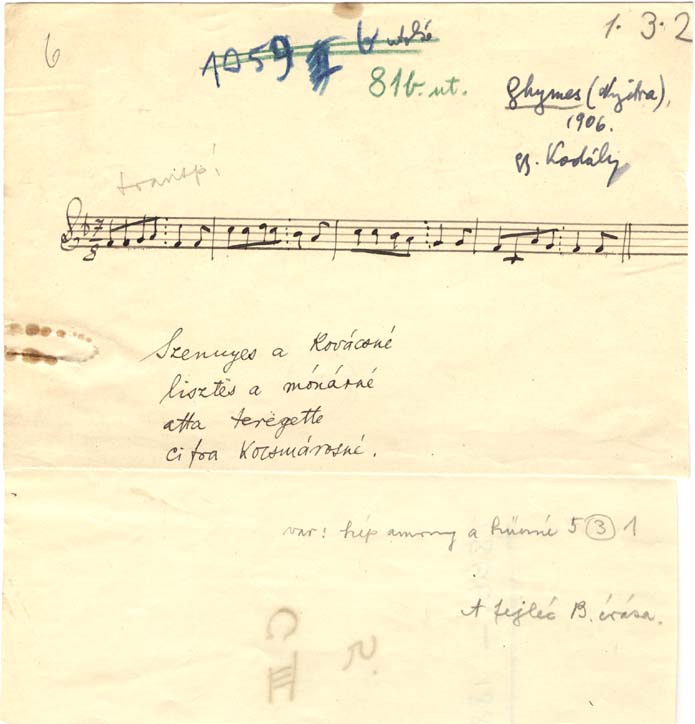 6
1059 b utolsó
1. 3. 2
81b. ut.
Ghymes (Nyitra),
1906.
gy. Kodály
transp!
7
8
Szennyes a Kovácsné
lisztës a mónárné
atta terëgette
cifra Kocsmárosné.
var: szép a 5 3 1
A fejléc B. írása.